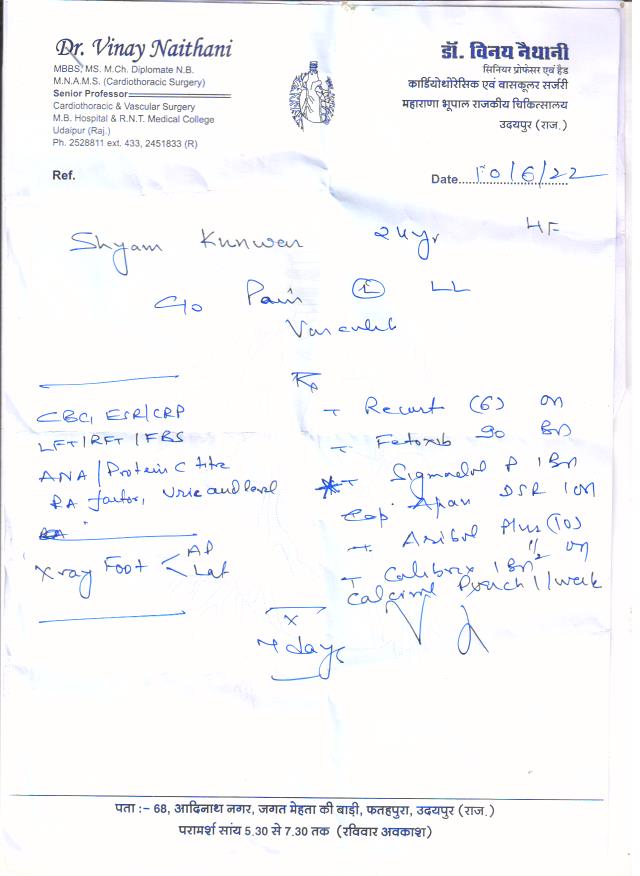 Dr. Vinay Naithani
MBBS, MS. M.Ch. Diplomate N.B.
M.N.A.M.S. (Cardiothoracic Surgery)
Senior Professor
Cardiothoracic & Vascular Surgery
M.B. Hospital & R.N.T. Medical College
Udaipur (Raj.)
Ph. 2528811 ext. 433, 2451833 (R)
डॉ. विनय नैथानी
सिनियर प्रोफेसर एवं हैड
कार्डियोथोरेसिक एवं वासकूलर सर्जरी
महाराणा भूपाल राजकीय चिकित्सालय
उदयपुर (राज.)
Ref.
Date 10/6/22
Shyam Kunwar 24yr
C/o Pain Ⓛ LL
CBC, ESR/CRP
LFT/RFT/FBS
ANA/Protein C titre
RA factor, Uric acid level
Xray Foot < AP
Lat
Rx
T (6) on
T 90 Bn
T P 1 Bn
Cap DSR 1 on
T Plus (10)
1/2 on
T 1 Bn
Pouch 1/week
x
7 days
पता :– 68, आदिनाथ नगर, जगत मेहता की बाड़ी, फतहपुरा, उदयपुर (राज.)
परामर्श सांय 5.30 से 7.30 तक (रविवार अवकाश)